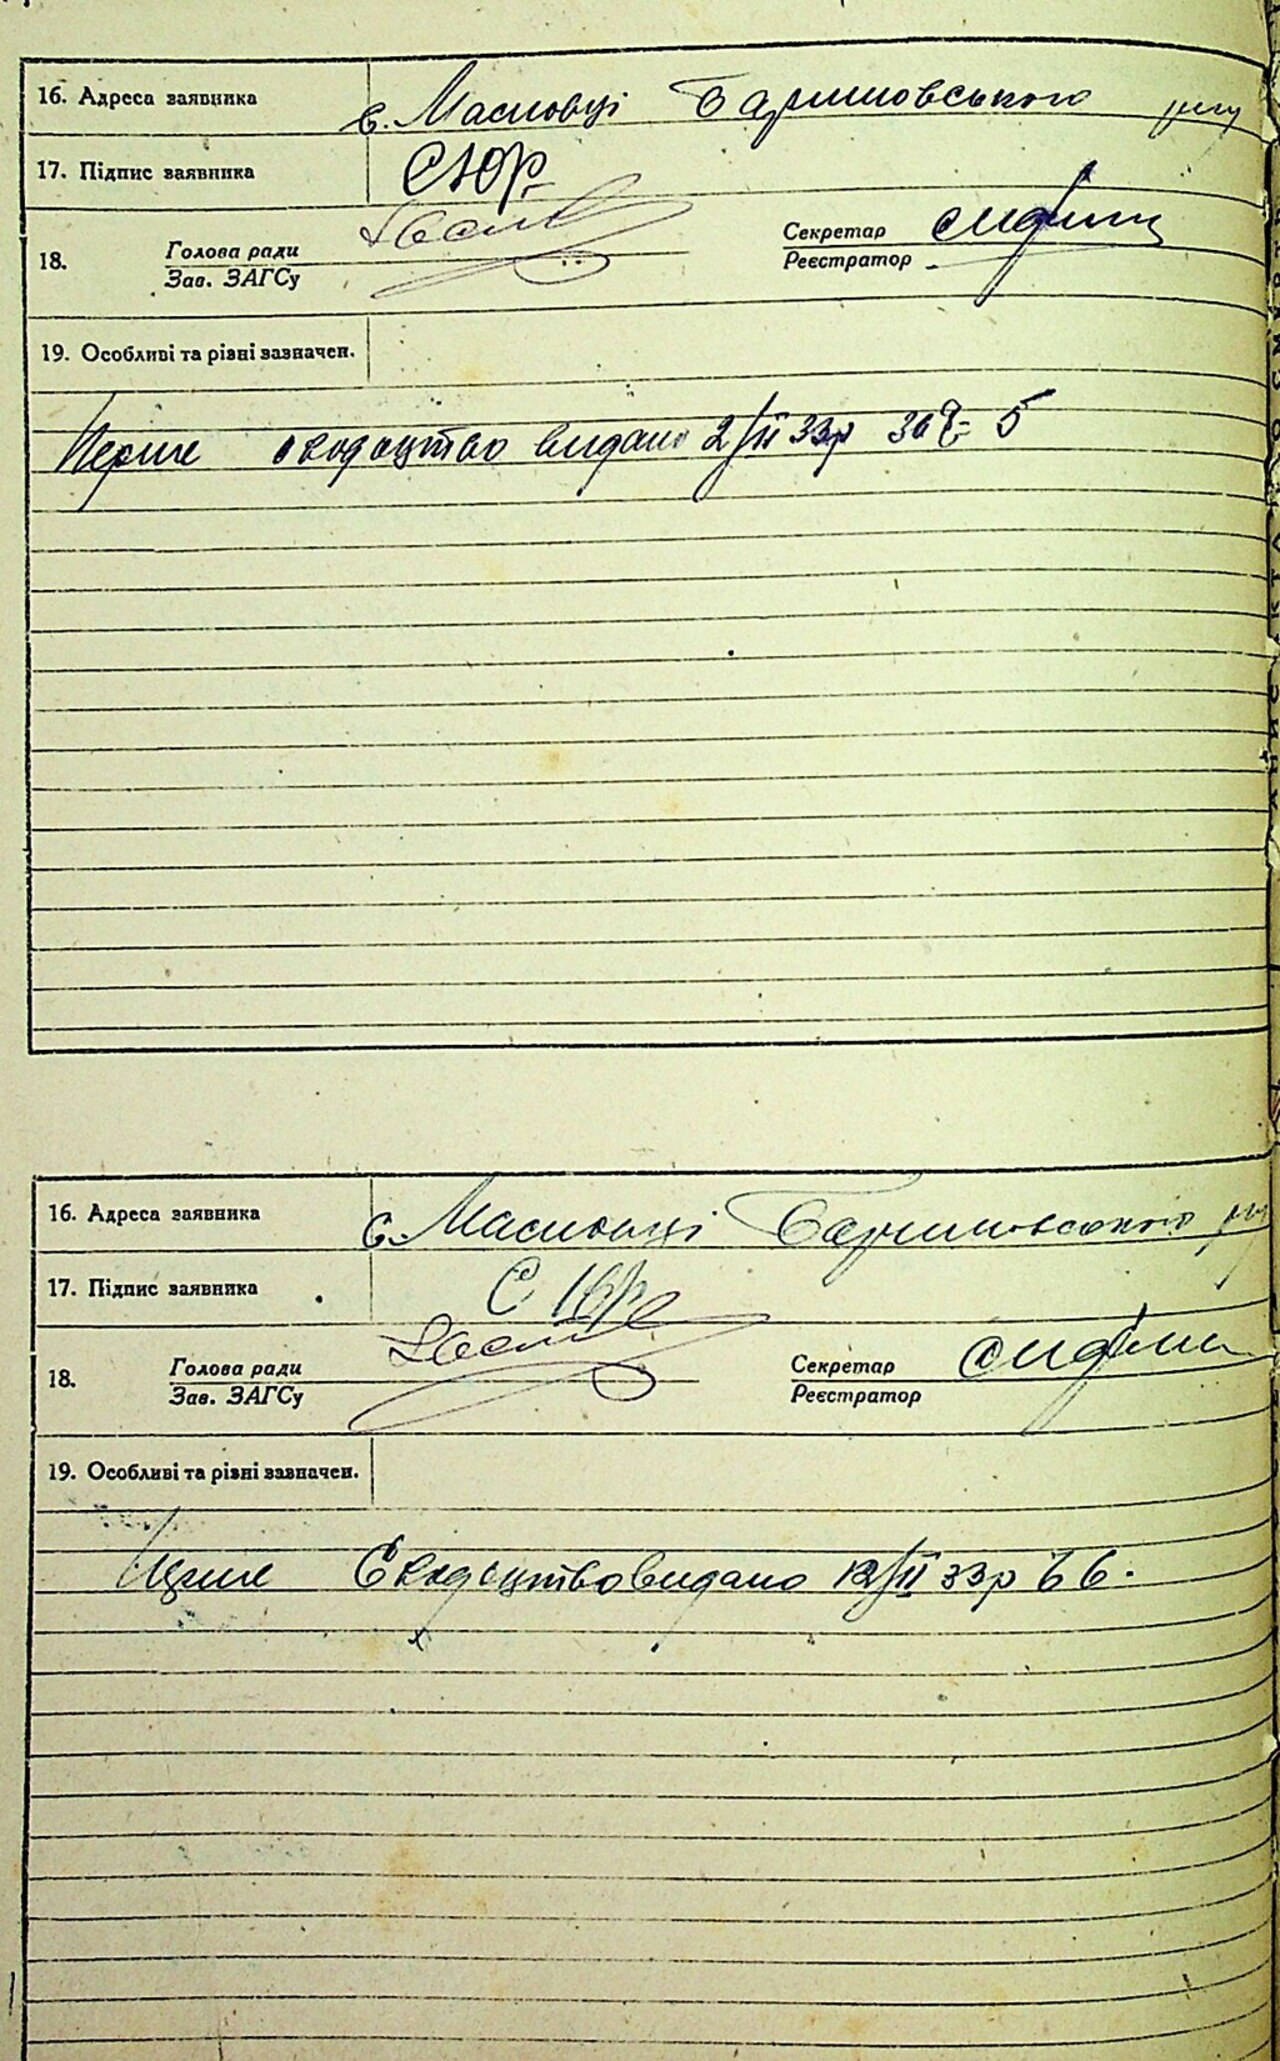 16. Адреса заявника с. Масловці Баришовського р-ну
17. Підпис заявника СЮР
Секретар
18. Голова ради
Зав. ЗАГСу
Реєстратор
19. Особливі та різні зазначен.
Перше свідоцтво видано 2/II 33р за № 5
16. Адреса заявника с. Масловці Баришовського р-ну
17. Підпис заявника
18. Голова ради
Зав. ЗАГСу
Секретар
Реєстратор
19. Особливі та різні зазначен.
Свідоцтво видано 12/II 33р № 6.